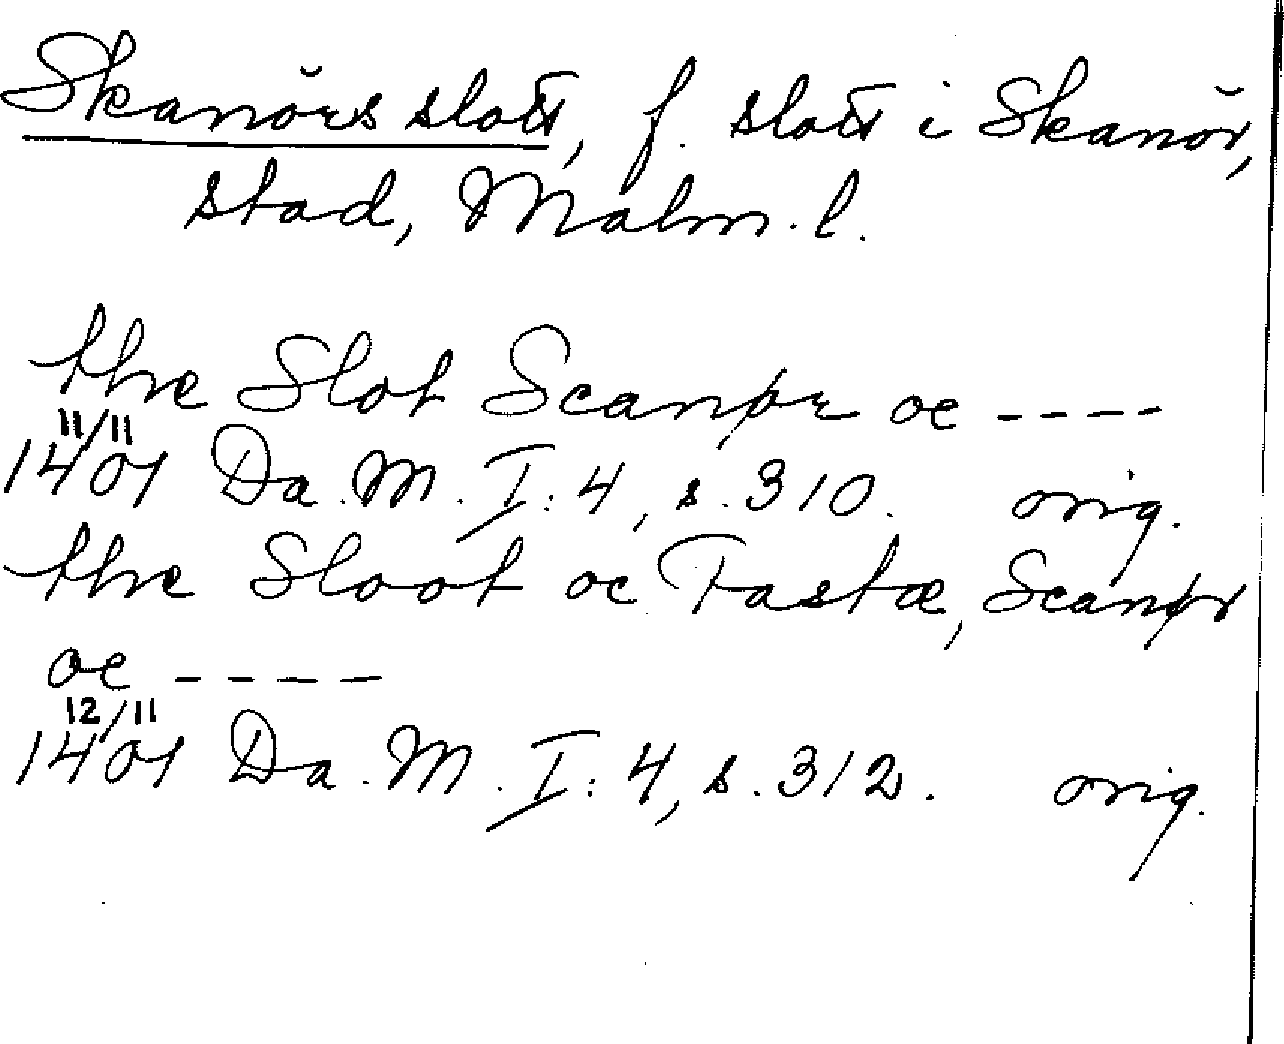 Skanörs slott, f. slott i Skanör,
stad, Malm. l.
the Slot Scanør oc ----
11/11
1401 Da. M. I: 4, s. 310. orig.
the Sloot oc Fastæ, Scanør
oc ----
12/11
1401 Da. M. I: 4, s. 312. orig.